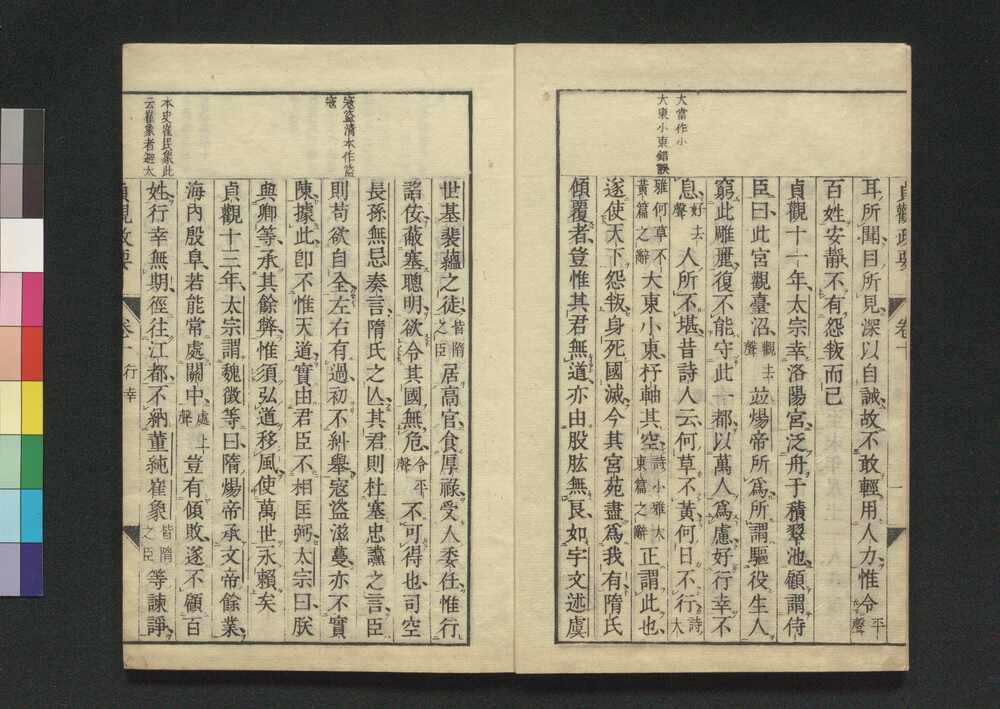 大當作小
大東小東錯誤
貞觀政要
卷十
一
耳所聞目所見深以自誡故不敢輕用人力惟令平聲
百姓安靜不有怨叛而已
貞觀十一年太宗幸洛陽宮泛舟于積翠池顧謂侍
臣曰此宮觀臺沼觀去聲並煬帝所爲所謂驅役生人
窮此雕麗復不能守此一都以萬人爲慮好行幸不
息好去聲人所不堪昔詩人云何草不黃何日不行詩大
雅何草不黃篇之辭大東小東杼軸其空詩小雅大東篇之辭正謂此也
遂使天下怨叛身死國滅今其宮苑盡爲我有隋氏
傾覆者豈惟其君無道亦由股肱無良如宇文述虞
寇盜清本作盜寇
本史崔民象此
云崔象者避太
世基裴蘊之徒皆隋之臣居高官食厚祿受人委任惟行
諂佞蔽塞聰明欲令其國無危令平聲不可得也司空
長孫無忌奏言隋氏之亾其君則杜塞忠讜之言臣
則苟欲自全左右有過初不糾舉寇盜滋蔓亦不實
陳據此卽不惟天道實由君臣不相匡弼太宗曰朕
與卿等承其餘弊惟須弘道移風使萬世永賴矣
貞觀十三年太宗謂魏徵等曰隋煬帝承文帝餘業
海內殷阜若能常處關中處上聲豈有傾敗遂不顧百
姓行幸無期徑往江都不納董純崔象皆隋之臣等諫諍
貞觀政要
卷十
行幸